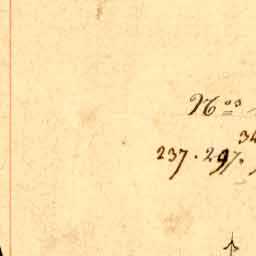 Nos
34
237. 297.